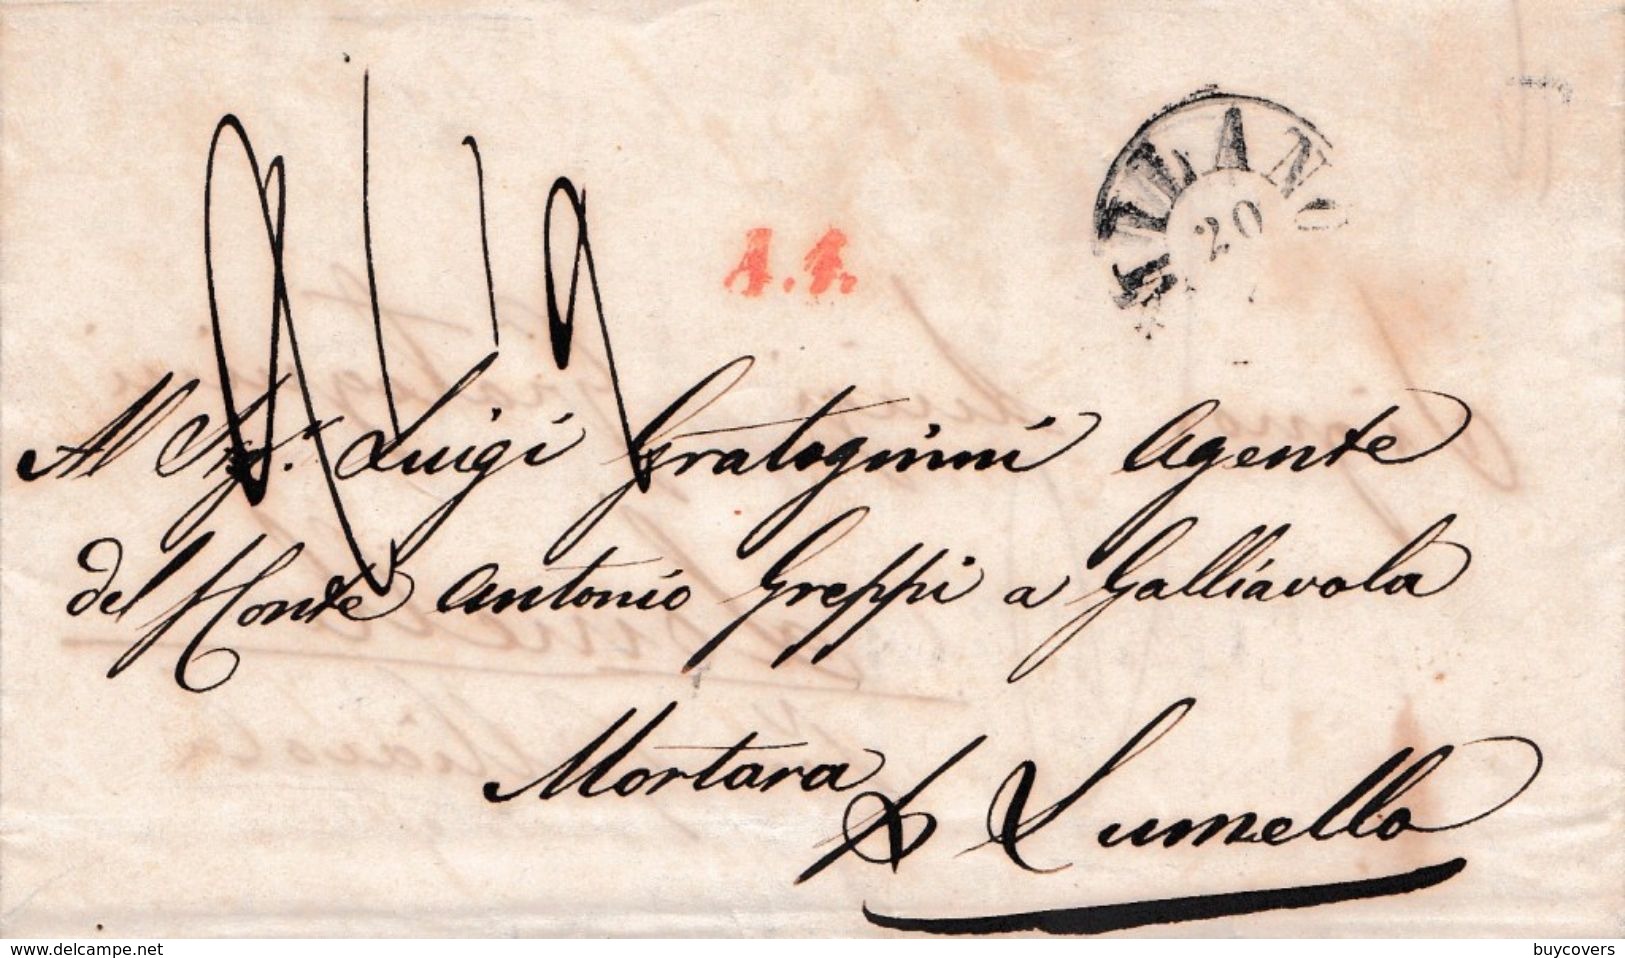 MILANO
20
A.1.
Al Sigr. Luigi Gratognini Agente
del Conte Antonio Greppi a Galliavola
Mortara p Lumello
www.delcampe.net
buycovers